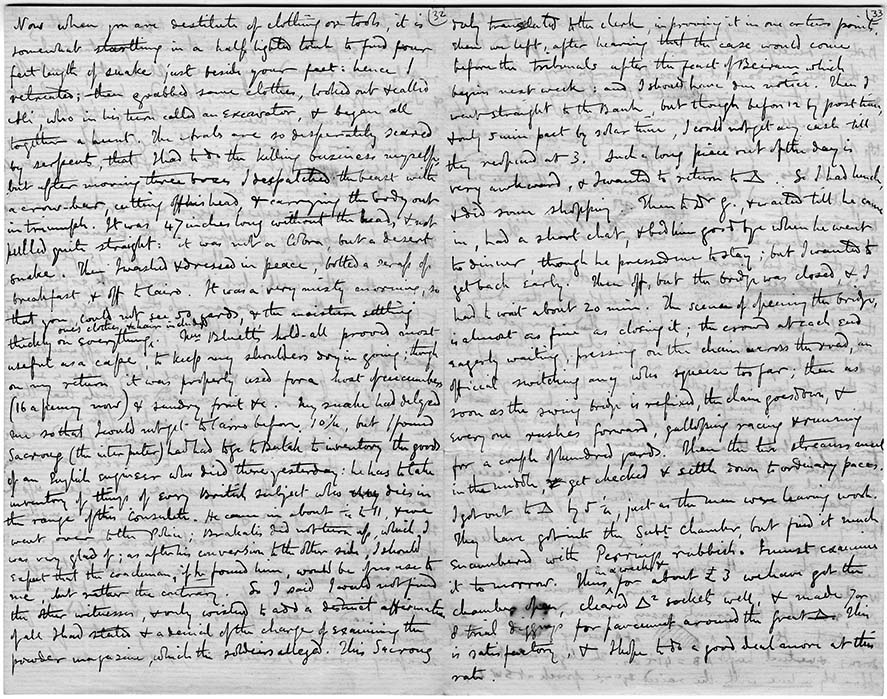 32
Now when you are destitute of clothing or tools, it is
somewhat startling in a half lighted tomb to find four
feet length of snake just beside your feet: hence I
retreated; then grabbed some clothes, looked out & called
Ali who in his turn called an Excavator, & began all
together a hunt. The Arabs are so desperately scared
by serpents, that I had to do the killing business myself,
but after moving three boxes I despatched the beast with
a crow-bar, cutting off his head, & carrying the body out
in triumph. It was 47 inches long without the head, & not
pulled quite straight: it was not a Cobra but a desert
snake. Then I washed & dressed in peace, bolted a scrap of
breakfast, & off to Cairo. It was a very misty morning, so
that you could not see 50 yards, & the moisture settling
thickly on everything, ones clothes, & hair included.
Bluett's hold-all proved most
useful as a cape, to keep my shoulders dry in going; though
on my return it was properly used for a host of cucumbers
(16 a penny now) & sundry fruit &c. My snake had delayed
me so that I could not get to Cairo before 10¼, but I found
Sacroug (the interpreter) had had to go to Bulak to inventory the goods
of an English engineer who died there yesterday: he has to take
inventory of things of every British subject who dies in
the range of this Consulate. He came in about ¼ to 11, & we
went over to the Police; Brakalis did not turn up, which I
was very glad of; as after his conversion to the other side, I should
expect that the coachman, if he found him, would be of no use to
me, but rather the contrary. So I said I would not find
the other witnesses, & only wished to add a distinct affirmation
of all I had stated & a denial of the charge of examining the
powder magazine, which the soldiers alleged. This Sacroug
33
duly translated to the clerk, improving it in one or two points,
then we left, after hearing that the case would come
before the tribunals after the feast of Beiram which
begins next week: and I should have due notice. Then I
went straight to the Bank, but though before 12 by post time,
& only 5 min past by solar time, I could not get any cash till
they reopened at 3. Such a long piece out of the day is
very awkward, & I wanted to return to Δ. So I had lunch,
& did some shopping. Then to Dr G. & waited till he came
in, had a short chat, & bid him good bye when he went
to dinner, though he pressed me to stay; but I wanted to
get back early. Then off, but the bridge was closed, & I
had to wait about 20 min. The scene of opening the bridge,
is almost as fine as closing it; the crowd at each end
eagerly waiting, pressing on the chain across the road, an
official switching any who squeeze too far; then as
soon as the swing bridge is refixed, the chain goes down, &
every one rushes forward, galloping racing & running
for a couple of hundred yards. Then the two streams meet
in the middle, get checked & settle down to ordinary paces.
I got out to Δ by 5¼, just as the men were leaving work.
They have got into the Subt. chamber, but find it much
encumbered with Perring's rubbish. I must examine
it tomorrow. Thus in a week & for about £3 we have got the
chamber open, cleared Δ² sockets well, & made 7 or
8 trial diggings for pavement around the great Δ. This
is satisfactory, & I hope to do a good deal more at this
rate.